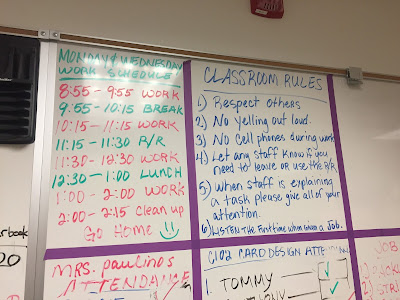 MONDAY & WEDNESDAY
WORK SCHEDULE
8:55 - 9:55 WORK
9:55 - 10:15 BREAK
10:15 - 11:15 WORK
11:15 - 11:30 R/R
11:30 - 12:30 WORK
12:30 - 1:00 LUNCH
1:00 - 2:00 WORK
2:00 - 2:15 Clean up
Go Home
MRS. Paulino's
ATTENDANCE
CLASSROOM RULES
1) Respect others
2) No Yelling out loud.
3) No Cell phones during work
4) Let any staff know if you
need to leave or use the R/R.
5) When staff is explaining
a task please give all of your
attention.
6) LISTEN The First time when given a Job.
C102 CARD DESIGN
1. TOMMY
JOB
20